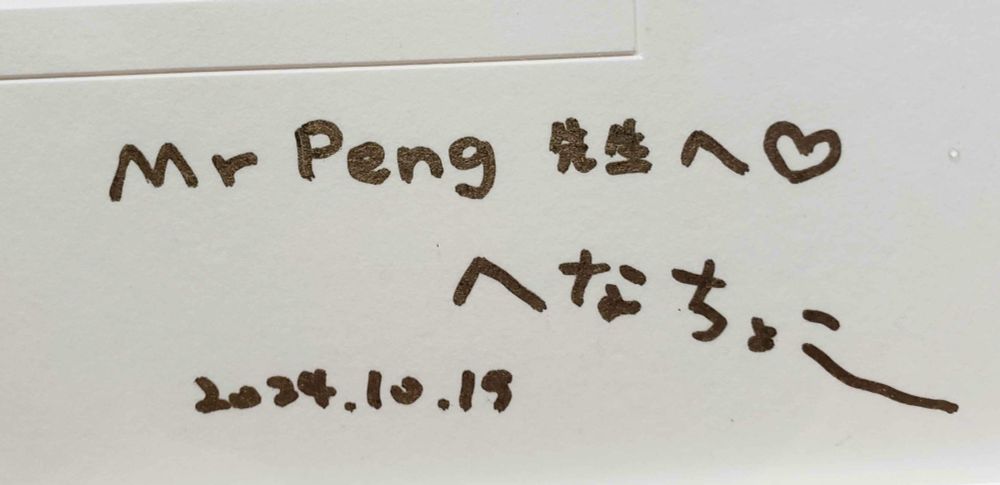 Mr Peng 先生へ♡
へなちょこ
2024.10.19